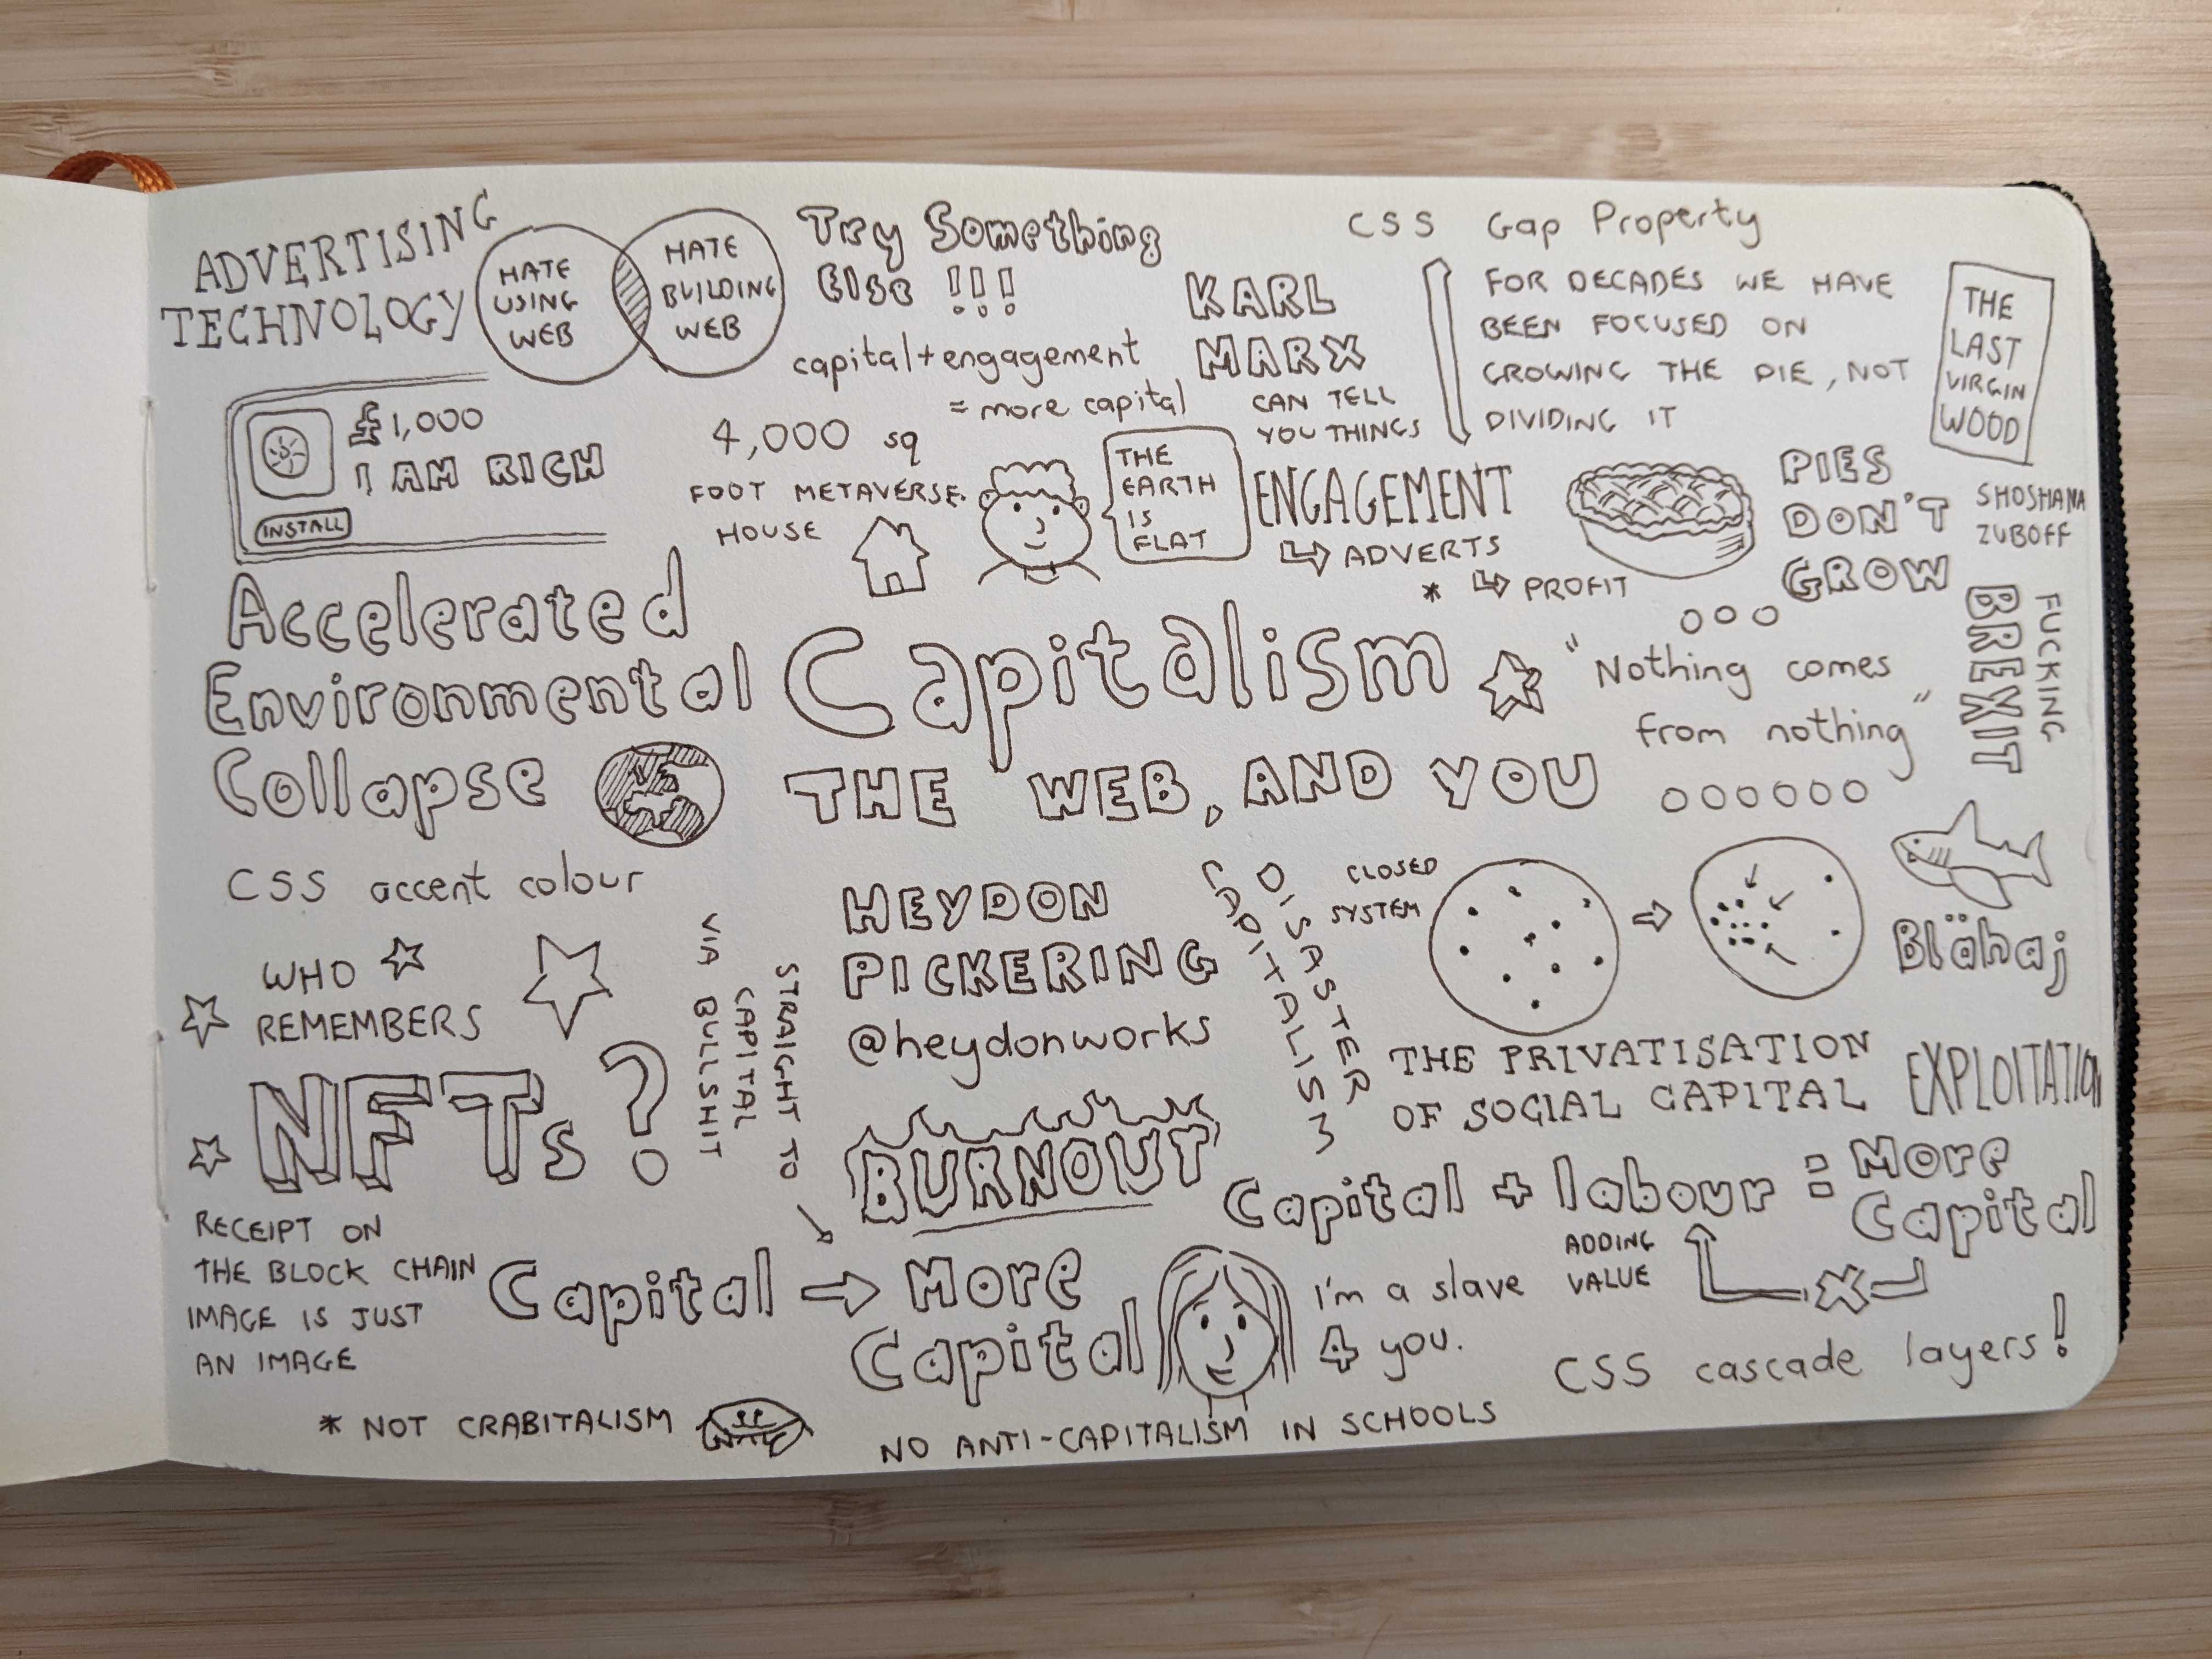 ADVERTISING
TECHNOLOGY
HATE
USING
WEB
HATE
BUILDING
WEB
Try Something
Else !!!
capital + engagement
= more capital
KARL
MARX
CAN TELL
YOU THINGS
CSS Gap Property
FOR DECADES WE HAVE
BEEN FOCUSED ON
GROWING THE PIE, NOT
DIVIDING IT
THE
LAST
VIRGIN
WOOD
£1,000
I AM RICH
INSTALL
4,000 sq
FOOT METAVERSE
HOUSE
THE
EARTH
IS
FLAT
ENGAGEMENT
ADVERTS
* PROFIT
PIES
DON'T
GROW
SHOSHANA
ZUBOFF
FUCKING
BREXIT
Accelerated
Environmental
Collapse
Capitalism
THE WEB, AND YOU
"Nothing comes
from nothing"
CSS accent colour
WHO
REMEMBERS
NFTs?
RECEIPT ON
THE BLOCK CHAIN
IMAGE IS JUST
AN IMAGE
STRAIGHT TO
CAPITAL
VIA BULLSHIT
HEYDON
PICKERING
@heydonworks
DISASTER
CAPITALISM
CLOSED
SYSTEM
Blåhaj
THE PRIVATISATION
OF SOCIAL CAPITAL
EXPLOITATION
BURNOUT
Capital + labour = More
Capital
ADDING
VALUE
Capital → More
Capital
I'm a slave
4 you.
CSS cascade layers!
* NOT CRABITALISM
NO ANTI-CAPITALISM IN SCHOOLS